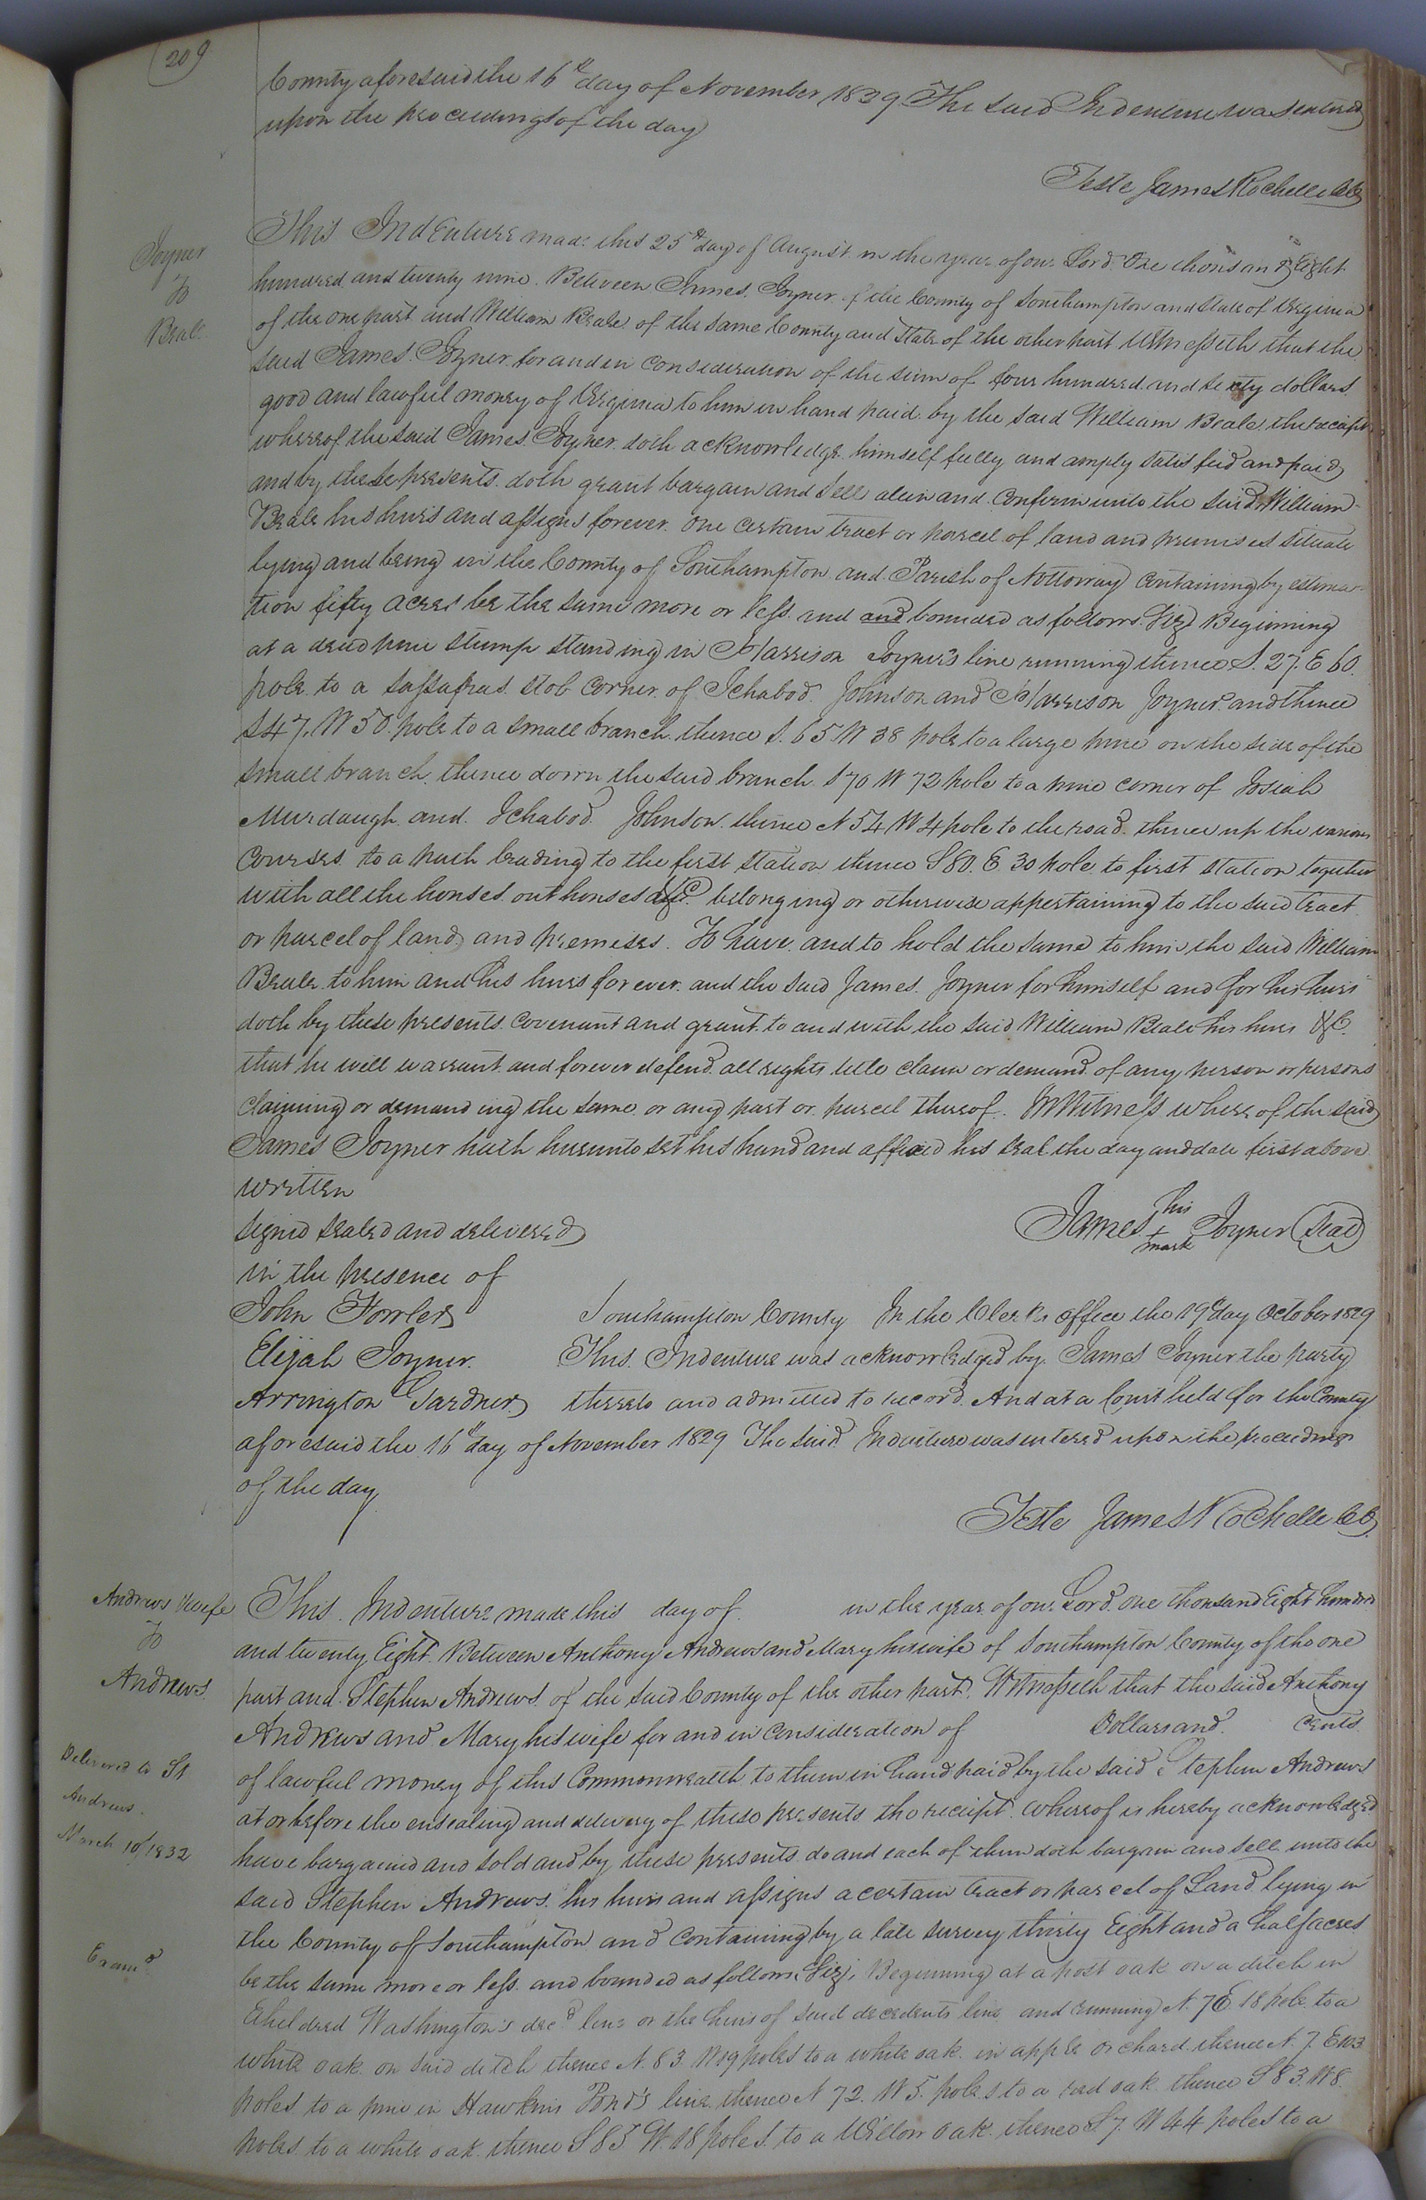 209
County aforesaid the 16th day of November 1829 The said Indenture was entered
upon the proceedings of the day
Teste James Rochelle CC
Joyner
To
Beale
This Indenture made this 25th day of August in the year of our Lord One thousand Eight
hundred and twenty nine. Between James Joyner of the County of Southampton and State of Virginia
of the one part and William Beale of the same County and State of the other part Witnesseth that the
said James Joyner for and in consideration of the sum of four hundred and seventy dollars
good and lawful money of Virginia to him in hand paid by the said William Beale the receipt
whereof the said James Joyner doth acknowledge himself fully and amply satisfied and paid
and by these presents doth grant bargain and sell alien and confirm unto the said William
Beale his heirs and assigns forever one certain tract or parcel of land and premises situate
lying and being in the County of Southampton and Parish of Nottoway containing by estima-
tion fifty acres be the same more or less and and bounded as follows Viz Beginning
at a dead pine stump standing in Harrison Joyner's line running thence S. 27. E 60.
pole to a sassafras stob corner of Ichabod Johnson and Harrison Joyner and thence
S 47. W 50 pole to a small branch thence S. 65 W 38 pole to a large pine on the side of the
small branch thence down the said branch S 70 W 72 pole to a pine corner of Josiah
Murdaugh and Ichabod Johnson thence N 54 W 4 pole to the road thence up the various
courses to a path leading to the first station thence S 80. E 30 pole to first station together
with all the houses out houses &c belonging or otherwise appertaining to the said tract
or parcel of land and premises. To have and to hold the same to him the said William
Beale to him and his heirs forever and the said James Joyner for himself and for his heirs
doth by these presents covenant and grant to and with the said William Beale his heirs &c.
that he will warrant and forever defend all rights title claim or demand of any person or persons
claiming or demanding the same or any part or parcel thereof. In Witness whereof the said
James Joyner hath hereunto set his hand and affixed his seal the day and date first above
written
signed sealed and delivered
in the presence of
James his + mark Joyner (Seal)
John Fowler
Elijah Joyner.
Arrington Gardner
Southampton County In the Clerk's office the 19th day October 1829
This Indenture was acknowledged by James Joyner the party
thereto and admitted to record And at a Court held for the County
aforesaid the 16th day of November 1829 The said Indenture was entered upon the proceedings
of the day
Teste James Rochelle CC
Andrews & wife
To
Andrews.
Delivered to St
Andrews.
March 10 / 1832
Exam'd
This Indenture made this day of in the year of our Lord one thousand Eight hundred
and twenty Eight Between Anthony Andrews and Mary his wife of Southampton County of the one
part and Stephen Andrews of the said County of the other part. Witnesseth that the said Anthony
Andrews and Mary his wife for and in consideration of Dollars and cents
of lawful money of this Commonwealth to them in hand paid by the said Stephen Andrews
at or before the ensealing and delivery of these presents the receipt whereof is hereby acknowledged
have bargained and sold and by these presents do and each of them doth bargain and sell unto the
said Stephen Andrews his heirs and assigns a certain tract or parcel of Land lying in
the County of Southampton and containing by a late survey thirty Eight and a half acres
be the same more or less and bounded as follows (Viz). Beginning at a post oak on a ditch in
Etheldred Washington's decd line or the heirs of said decedents line and running N. 7 E. 18 pole to a
white oak on said ditch thence N. 83. W 19 poles to a white oak in apple orchard thence N. 7. E
poles to a pine in Hawkins Pond's line thence N 72. W 5. poles to a red oak thence S 83 W 8
poles to a white oak thence S 85 W. 18 poles to a Willow oak thence S 7. W 44 poles to a